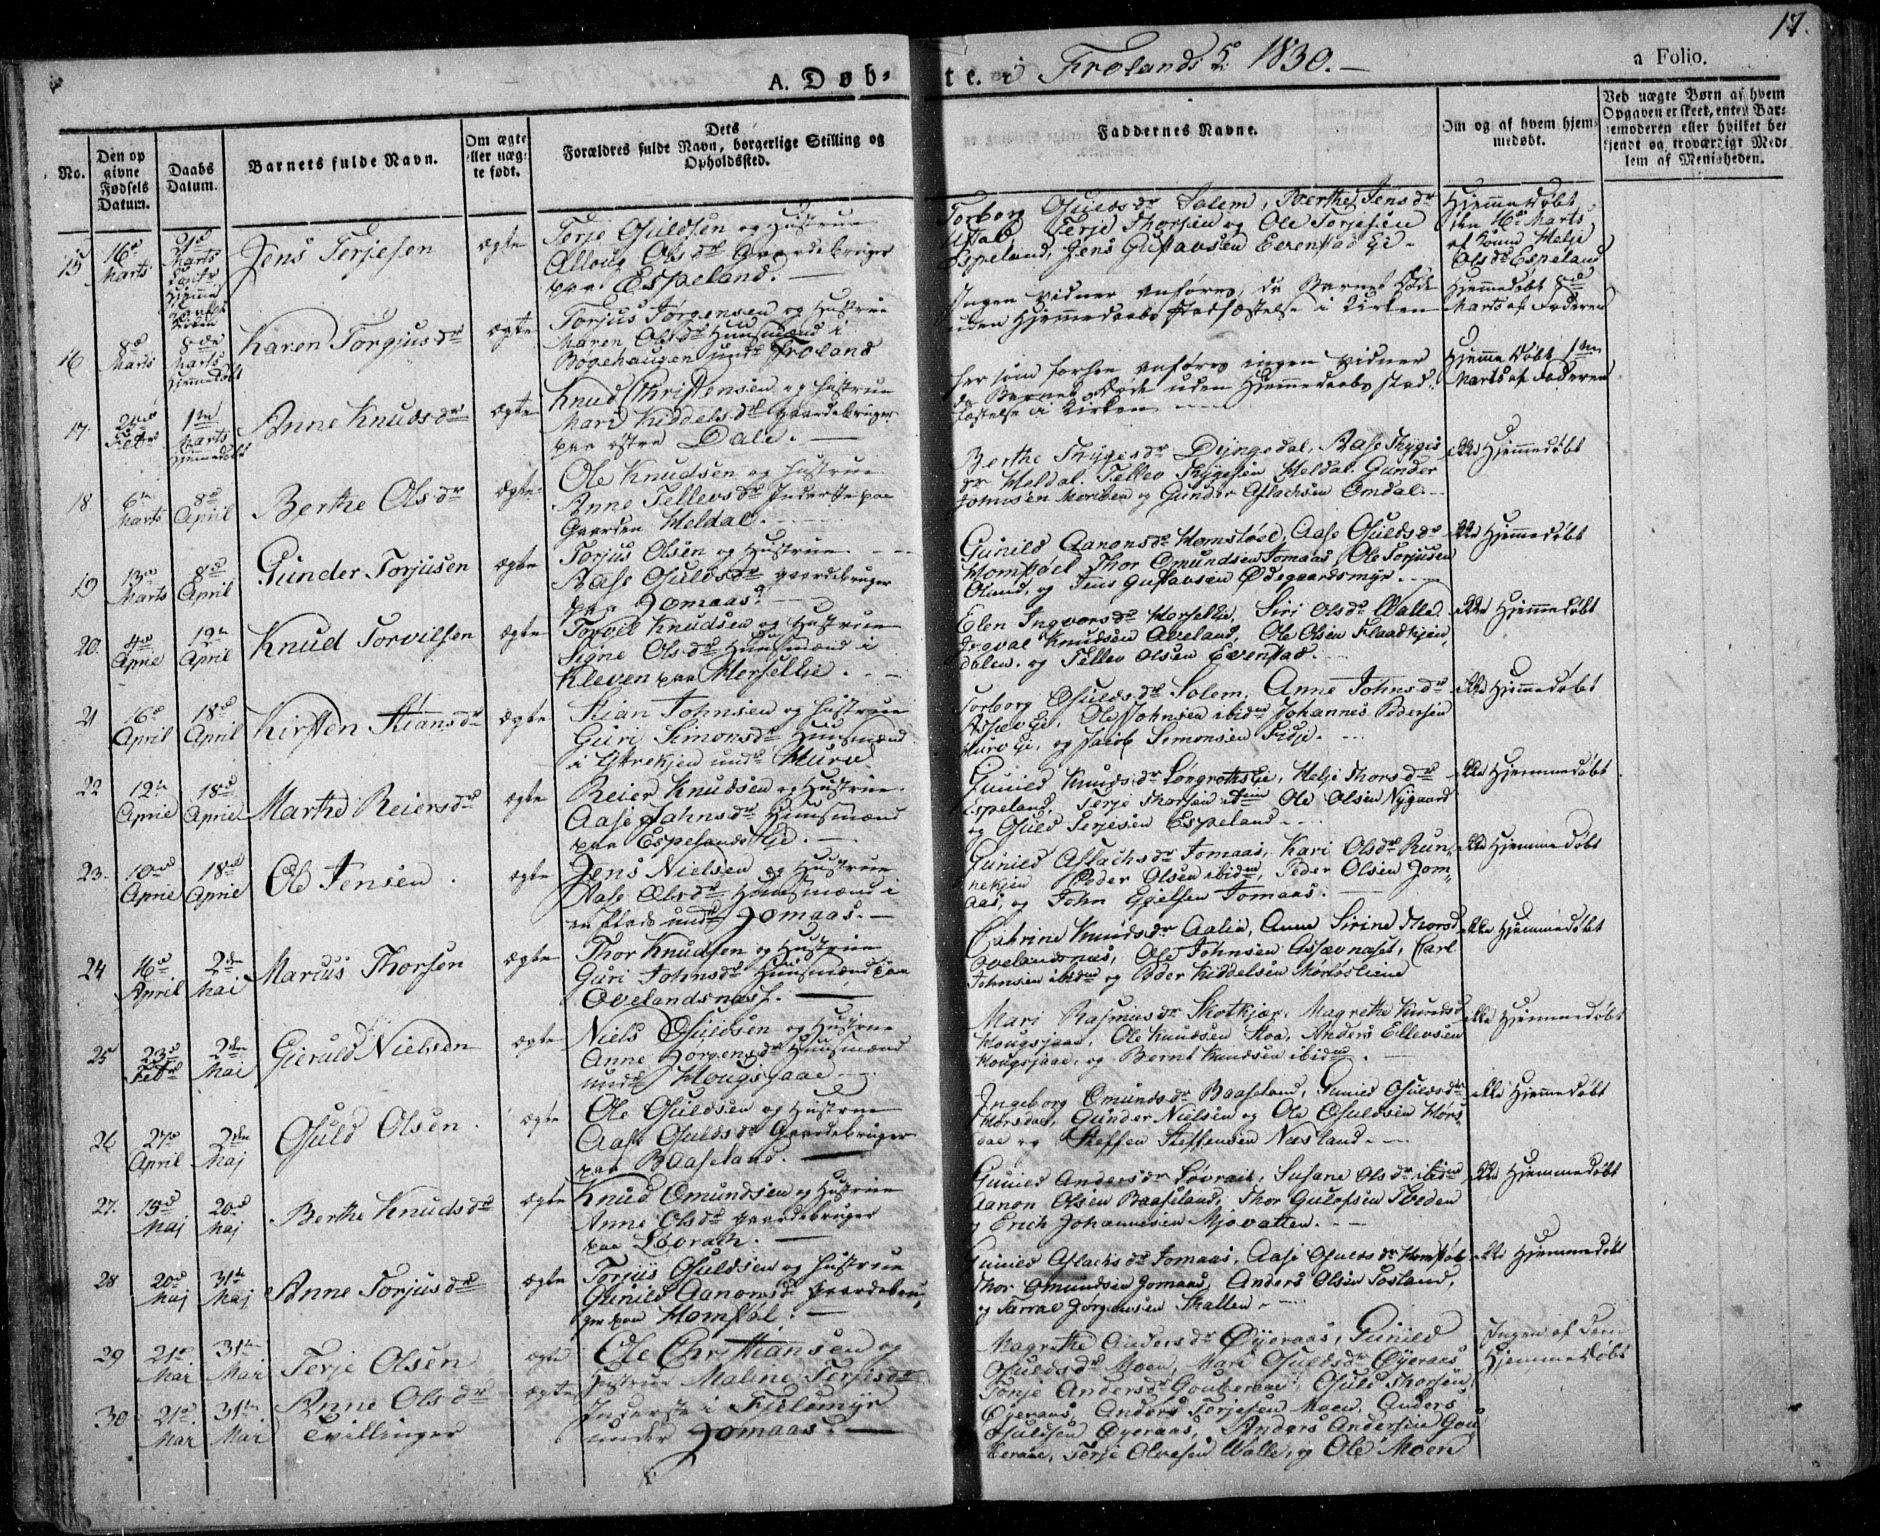 17.
A. Døb- te. i Frolands S. 1830. a Folio.
No.
Den op
givne
Fødsels
Datum.
Daabs
Datum.
Barnets fulde Navn.
Om ægte
eller uæg-
te født.
Dets
Forældres fulde Navn, borgerlige Stilling og
Opholdssted.
Faddernes Navne.
Om og af hvem hjem-
medøbt.
Ved uægte Børn af hvem
Opgaven er skeet, enten Bar-
nemoderen eller hvilket be
kjendt og troværdigt Med-
lem af Menigheden.
15
16de
Marts
Marts
Jens Terjesen
ægte
Terje Osuldsen og Hustrue
Olsdr Gaardebruger
paa Espeland.
Torborg Osuldsdr Solem, Berthe Jensdr
Terje Thorsen og Ole Terjesen
Espeland, Jens Gustavsen Evenstad
Hjemmedøbt
den 16de Marts
af Helje
Olsdr Espeland
16
8de
Marts
8de
Marts
Hjemmedøbt
Karen Torgjusdr
ægte
Torjus Jørgensen og Hustrue
Maren Olsdr Huusmænd i
Bøgehaugen undr Froland
Ingen vidner anføres, da Barnet døde
uden Hjemmedaabs Stadfæstelse i Kirken
Hjemmedøbt 8de
Marts af Faderen
17.
Febr
1ste
Marts
Hjemmedøbt
Anne Knudsdr
ægte
Knud Christensen og Hustrue
Mari Kiddelsdr Gaardebruger
paa østre Dale.
her som forhen anføres ingen vidner
da Barnet døde uden Hjemmedaabs stad-
fæstelse i Kirken
Hjemmedøbt 1ste
Marts af Faderen
18
6te
Marts
8de
April
Berthe Olsdr
ægte
Ole Knudsen og Hustrue
Anne Tellevsdr Inderste paa
Gaarden Heldal.
Berthe Thygesdr Dyngedal, Aase Thyges
dr Heldal. Tellev Thygesen Heldal. Gunder
Johnsen Moriben og Gunder Aslachsen Omdal.
ikke Hjemmedøbt
19
13de
Marts
8de
April
Gunder Torjusen
ægte
Torjus Olsen og Hustrue
Aase Osuldsdr Gaardebruger
paa Jomaas.
Gunild Aanonsdr Homstøel, Aase Osuldsdr
Homstøel Thor Omundsen Jomaas, Ole Torjusen
og Jens Gustavsen Ødegaardsmyr.
ikke Hjemmedøbt
20.
4de
April
12te
April
Knud Torvilsen
ægte
Torvil Knudsen og Hustrue
Signe Olsdr Huusmænd i
Kleven paa Herselkje.
Elen Ingvorsdr Herselkie, Siri Olsdr Walle
Knudsen Aveland, Ole Olsen Flaadkjen,
dalen. og Tellev Olsen Evenstad.
ikke Hjemmedøbt
21
16de
April
18de
April
Kirsten Stiansdr
ægte
Stian Johnsen og Hustrue
Guri Simonsdr Huusmænd
i Ytrekjen undr Mura
Torborg Osuldsdr Solem, Anne Johnsdr
Ole Johnsen ibidm Johannes Pedersen
og Jacob Simonsen Fidje.
ikke Hjemmedøbt
22
12te
April
18de
April
Marthe Reiersdr
ægte
Reier Knudsen og Hustrue
Aase Jahnsdr Huusmænd
paa Espelands Eie.
Gunild Knudsdr Helje Thorsdr
Espeland, Terje Thorsen Ole Olsen Nygaard
og Osuld Terjesen Espeland.
ikke Hjemmedøbt
23.
10de
April
18de
April
Ole Jensen.
ægte
Jens Nielsen og Hustrue
Aase Olsdr Huusmænd i
en Plads undr Jomaas.
Gunild Aslachsdr Jomaas, Kari Olsdr Run-
nekjen Peder Olsen ibidm, Peder Olsen Jom-
aas, og John Egelsen Jomaas.
ikke Hjemmedøbt
24
16de
April
2den
Mai
Marcus Thorsen
ægte
Thor Knudsen og Hustrue
Guri Johnsdr Huusmænd paa
Ovelandsnæss.
Cathrine Knudsdr Aalie, Anne Sirine Thorsd
Ovelandsnæs, Ole Johnsen Assævnaset, Carl
Johnsen ibidm og Peder Kiddelsen
ikke Hjemmedøbt
25
23de
Febr
2den
Mai
Gieruld Nielsen
ægte
Niels Osuldsen og Hustrue
Anne Jørgensdr Huusmænd
undr Hougsjaae
Mari Rasmusdr Skotkjær, Magrethe Knudsd
Hougsjaae, Ole Knudsen Stoa, Anders Ellevsen
Hougsjaae, og Bernt Knudsen ibidm
ikke Hjemmedøbt
26
27de
April
2den
Maj
Osuld Olsen.
ægte
Ole Osuldsen og Hustrue
Aase Osuldsdr Gaardebruger
paa Baaseland.
Ingeborg Omundsdr Baaseland, Gunild Osuldsdr
Hørsdal, Gunder Nielsen og Ole Osuldsen Hørs-
dal og Steffen Steffensen Næsland.
ikke Hjemmedøbt
27.
13de
Maj
20de
Maj
Berthe Knudsdr
ægte
Knud Omundsen og Hustrue
Anne Olsdr Gaardebruger
paa Løvrach.
Gunild Andersdr Løvrait, Susane Olsdr ibidm
Aanon Olsen Baaseland, Thor Gulofsen Tveden
og Erich Johannesen Mjovatten.
ikke Hjemmedøbt
28
20de
Maj
31te
Maj
Anne Torjusdr
ægte
Torjus Osuldsen og Hustrue
Gunild Aanonsdr Gaardebru-
ger paa Homstøl.
Gunild Aslachsdr Jomaas, Aase Osuldsdr Homstøl
Thor Omundsen Jomaas, Anders Olsen Fosland,
og Tarral Jørgensen Skallen.
ikke Hjemmedøbt
29
21de
Mai
31te
Mai
Terje Olsen
ægte
Ole Christiansen og
Hustrue Maline Terjesdr
Inderste i Fjeldmyr
under Jomaas.
30
21de
Mai
31te
Mai
Anne Olsdr
Tvillinger
ægte
Magrethe Andersdr Øyeraas, Gunild
Osuldsdr Moen, Mari Osuldsdr Øyeraas
Tonje Andersdr Osuld Thorsen
Øyeraas, Anders Terjesen Moen, Anders
Osuldsen Øyeraas, Anders Andersen
Terje Olvesen Walle, og Ole Moen
Ingen af dem
Hjemmedøbt